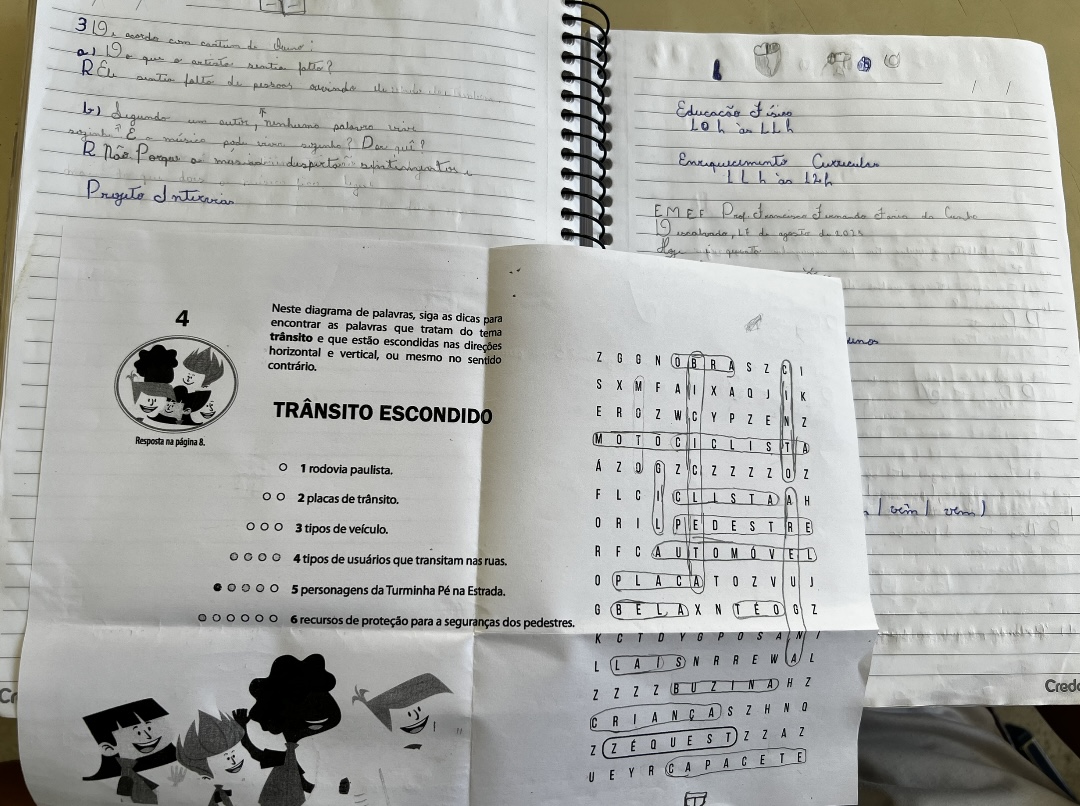 a) O que o artista sentia falta?
R Ele sentia falta de pessoas ouvindo
b) Segundo um autor, nenhuma palavra vive
sozinha. E a música pode viver sozinha? Por quê?
R Não. Porque as músicas despertam sentimentos
Projeto
Educação Física
10 h às 11 h
Enriquecimento Curricular
11 h às 12h
EMEF Prof. Francisco Fernando
de agosto de 2025
vêm / vem)
Cred
4
Resposta na página 8.
Neste diagrama de palavras, siga as dicas para
encontrar as palavras que tratam do tema
trânsito e que estão escondidas nas direções
horizontal e vertical, ou mesmo no sentido
contrário.
TRÂNSITO ESCONDIDO
1 rodovia paulista.
2 placas de trânsito.
3 tipos de veículo.
4 tipos de usuários que transitam nas ruas.
5 personagens da Turminha Pé na Estrada.
6 recursos de proteção para a seguranças dos pedestres.
Z G G N O B R A S Z C I
S X M F A I X A Q J I K
E R O Z W C Y P Z E N Z
M O T O C I C L I S T A
Á Z O G Z C Z Z Z Z O Z
F L C I C L I S T A A H
O R I L P E D E S T R E
R F C A U T O M Ó V E L
O P L A C A T O Z V U J
G B E L A X N T É O G Z
K C T D Y G P O S A N I
L L A I S N R R E W A L
Z Z Z Z B U Z I N A H Z
C R I A N Ç A S Z H N O
Z Z É Q U E S T Z Z A Z
U E Y R C A P A C E T E